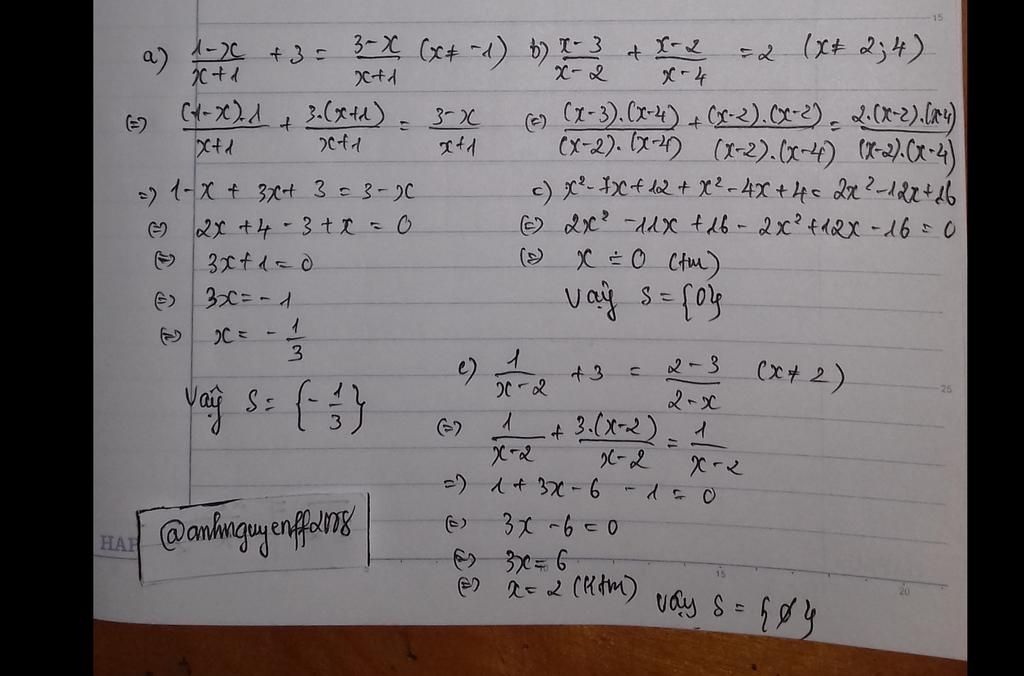 a) (1-x)/(x+1) + 3 = (3-x)/(x+1) (x≠ -1)
(=) ((1-x).1)/(x+1) + (3.(x+1))/(x+1) = (3-x)/(x+1)
=) 1-x + 3x+ 3 = 3-x
(=) 2x +4 - 3 + x = 0
(=) 3x+1 = 0
(=) 3x = -1
(=) x = - 1/3
Vậy S = {- 1/3}
b) (x-3)/(x-2) + (x-2)/(x-4) = 2 (x≠ 2;4)
(=) ((x-3).(x-4))/((x-2).(x-4)) + ((x-2).(x-2))/((x-2).(x-4)) = (2.(x-2).(x-4))/((x-2).(x-4))
=) x²-7x+12 + x²-4x+4 = 2x²-12x+16
(=) 2x² -11x +16 - 2x²+12x -16 = 0
(=) x = 0 (tm)
Vậy S = {0}
c) 1/(x-2) +3 = (2-3)/(2-x) (x≠2)
(=) 1/(x-2) + (3.(x-2))/(x-2) = 1/(x-2)
=) 1+3x-6 -1 = 0
(=) 3x -6 = 0
(=) 3x = 6
(=) x = 2 (Ktm)
Vậy S = {∅}
@anhnguyenff2008
HAP
15
25
15
20